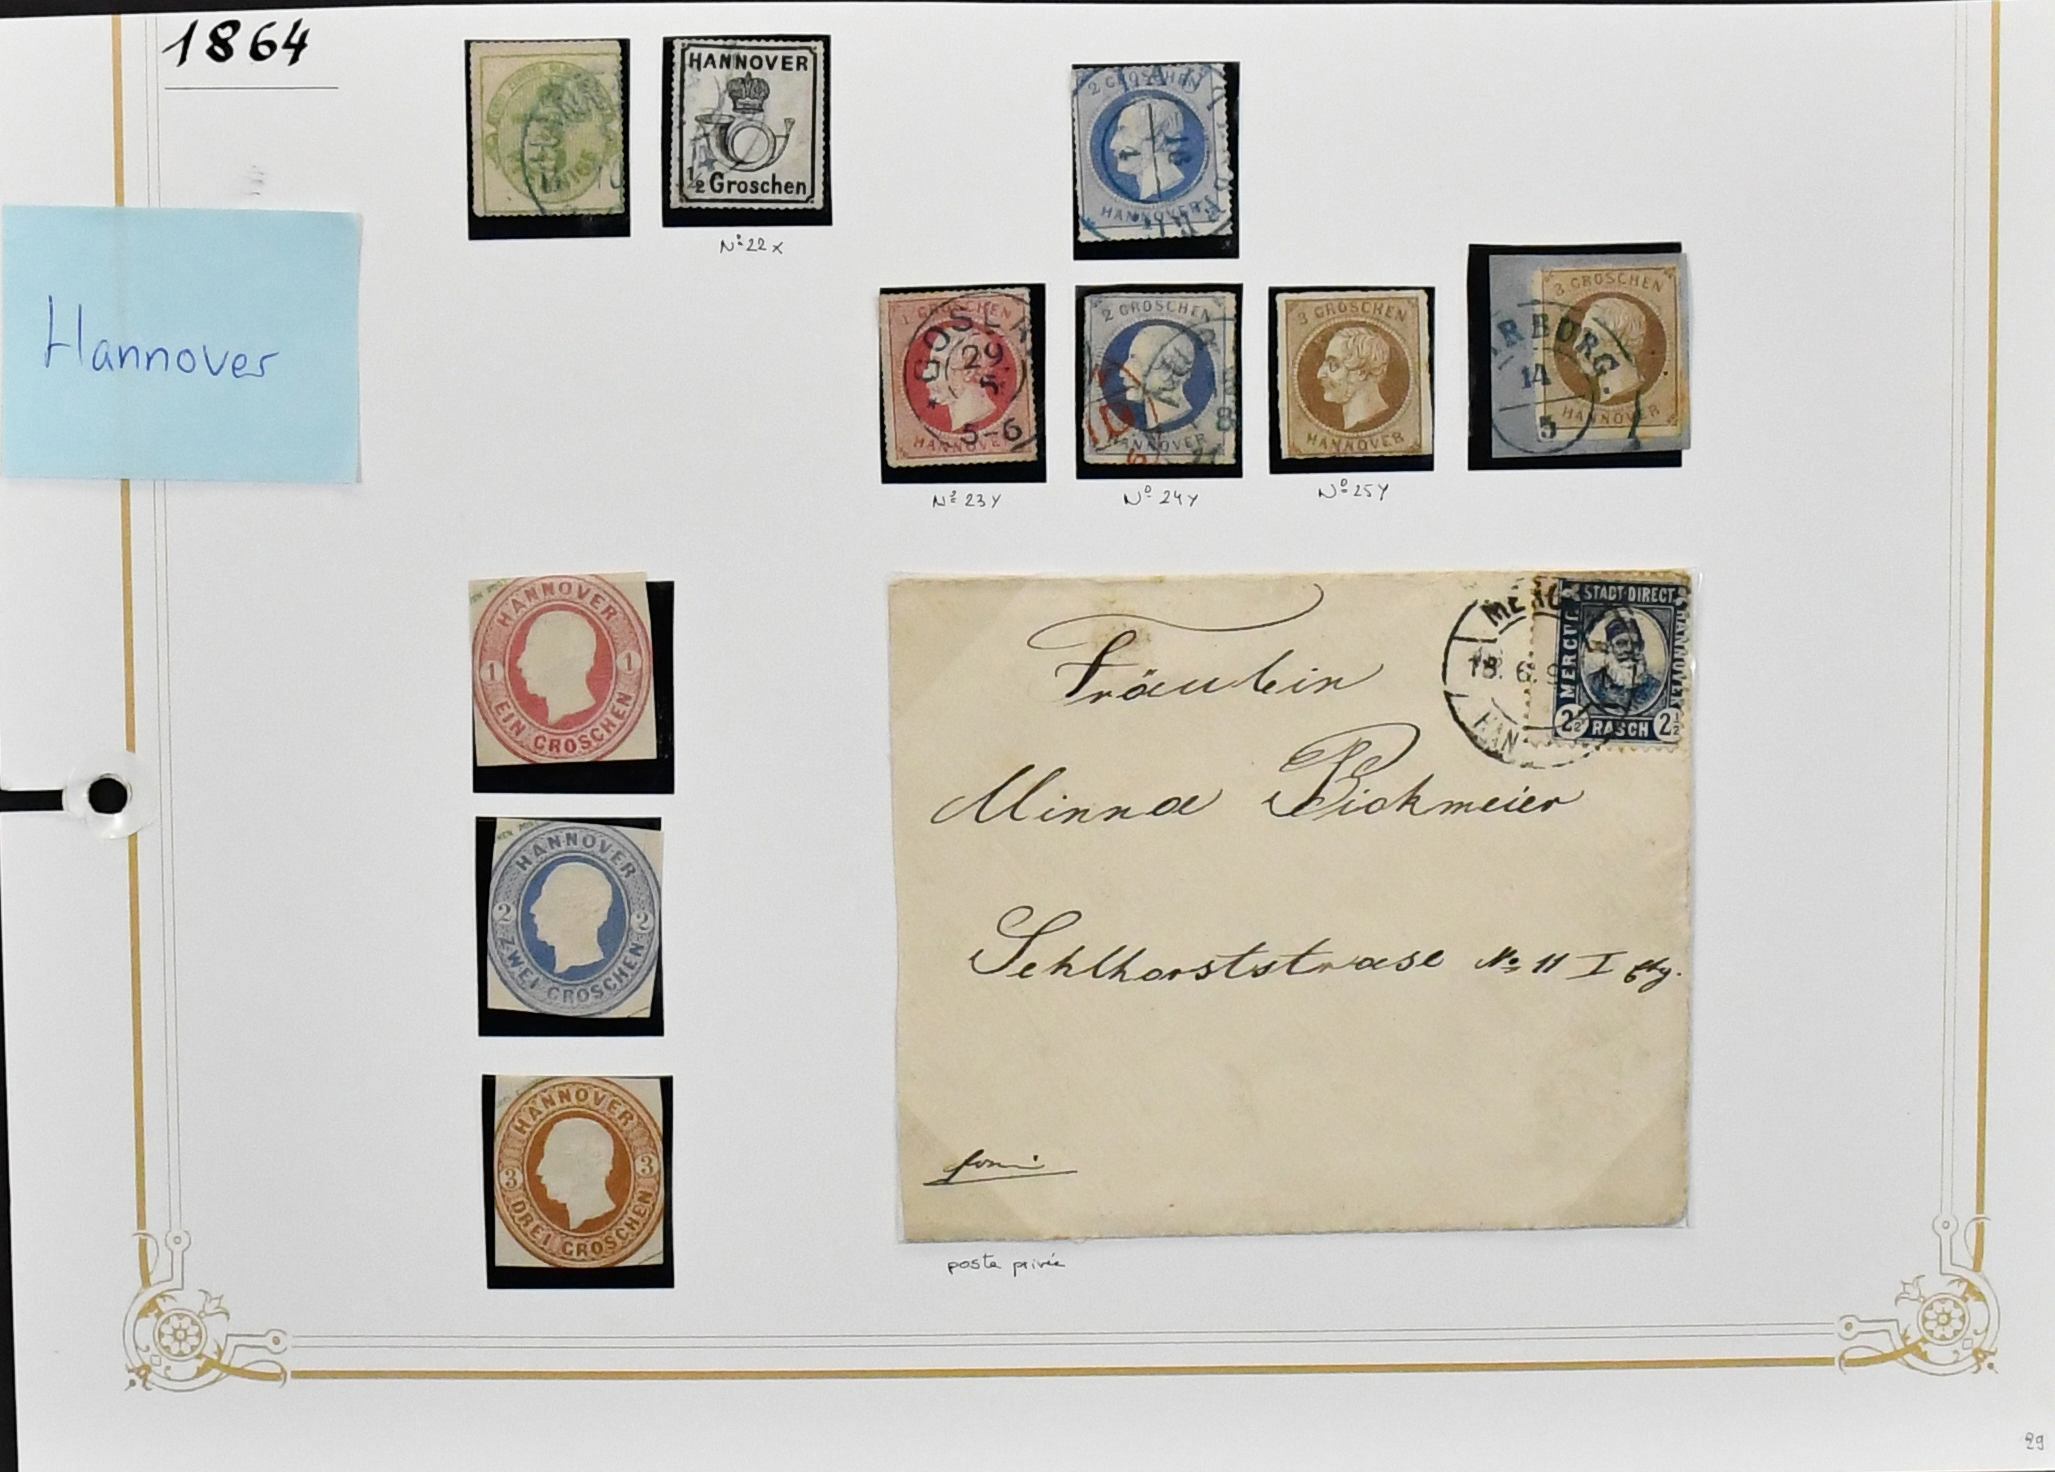 1864
Hannover
HANNOVER
1/2 Groschen
Nº 22 x
2 GROSCHEN
HANNOVER
1 GROSCHEN
HANNOVER
GOSLAR
29
5
5-6
Nº 23 y
2 GROSCHEN
HANNOVER
Nº 24 y
3 GROSCHEN
HANNOVER
Nº 25 y
3 GROSCHEN
HANNOVER
ARBURG.
14
5
HANNOVER
1 1
EIN GROSCHEN
HANNOVER
2 2
ZWEI GROSCHEN
HANNOVER
3 3
DREI GROSCHEN
STADT-DIRECT
MERCUR
HANNOVER
2½ RASCH 2½
18. 6. 9
HAN
Fräulein
Minna Bickmeier
Sehlhorststrase No 11 I Etg.
poste privée
29